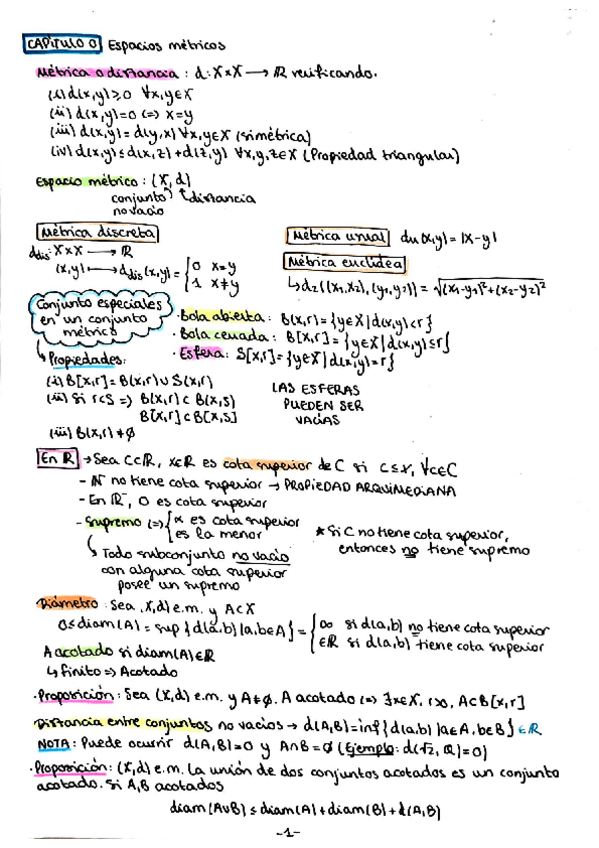 CAPÍTULO 0 Espacios métricos
Métrica o distancia : d: X×X → ℝ verificando.
(i) d(x,y) ≥ 0 ∀x,y∈X
(ii) d(x,y)=0 <=> x=y
(iii) d(x,y) = d(y,x) ∀x,y∈X (simétrica)
(iv) d(x,y) ≤ d(x,z) + d(z,y) ∀x,y,z∈X (Propiedad triangular)
Espacio métrico : (X, d)
conjunto no vacío
distancia
Métrica discreta
d_dis: X×X → ℝ
(x,y) ↦ d_dis(x,y) = { 0 x=y
1 x≠y
Métrica usual du(x,y) = |x-y|
Métrica euclídea
↳ d₂((x₁,x₂), (y₁,y₂)) = √(x₁-y₁)²+(x₂-y₂)²
Conjunto especiales
en un conjunto
métrico
· Bola abierta : B(x,r) = {y∈X | d(x,y) < r}
· Bola cerrada : B[x,r] = {y∈X | d(x,y) ≤ r}
· Esfera : S[x,r] = {y∈X | d(x,y) = r}
↳ Propiedades:
(i) B[x,r] = B(x,r) ∪ S(x,r)
(ii) Si r<S => B(x,r) ⊂ B(x,s)
B[x,r] ⊂ B[x,s]
(iii) B(x,r) ≠ ∅
LAS ESFERAS
PUEDEN SER
VACÍAS
En ℝ → Sea C⊂ℝ, x∈ℝ es cota superior de C si c≤x, ∀c∈C
- ℕ no tiene cota superior → PROPIEDAD ARQUIMEDIANA
- En ℝ⁻, 0 es cota superior
- Supremo <=> { α es cota superior
es la menor
↳ Todo subconjunto no vacío
con alguna cota superior
posee un supremo
★ Si C no tiene cota superior,
entonces no tiene supremo
Diámetro : Sea (X,d) e.m. y A⊂X
0 ≤ diam(A) = sup {d(a,b) | a,b∈A} = { ∞ si d(a,b) no tiene cota superior
∈ℝ si d(a,b) tiene cota superior
A acotado si diam(A)∈ℝ
↳ finito => Acotado
· Proposición : Sea (X,d) e.m. y A≠∅. A acotado <=> ∃x∈X, r>0, A⊂B[x,r]
Distancia entre conjuntos no vacíos → d(A,B) = inf {d(a,b) | a∈A, b∈B} ∈ℝ
NOTA : Puede ocurrir d(A,B)=0 y A∩B=∅ (Ejemplo: d(√2, ℚ)=0)
· Proposición: (X,d) e.m. La unión de dos conjuntos acotados es un conjunto
acotado. Si A,B acotados
diam(A∪B) ≤ diam(A) + diam(B) + d(A,B)
-1-